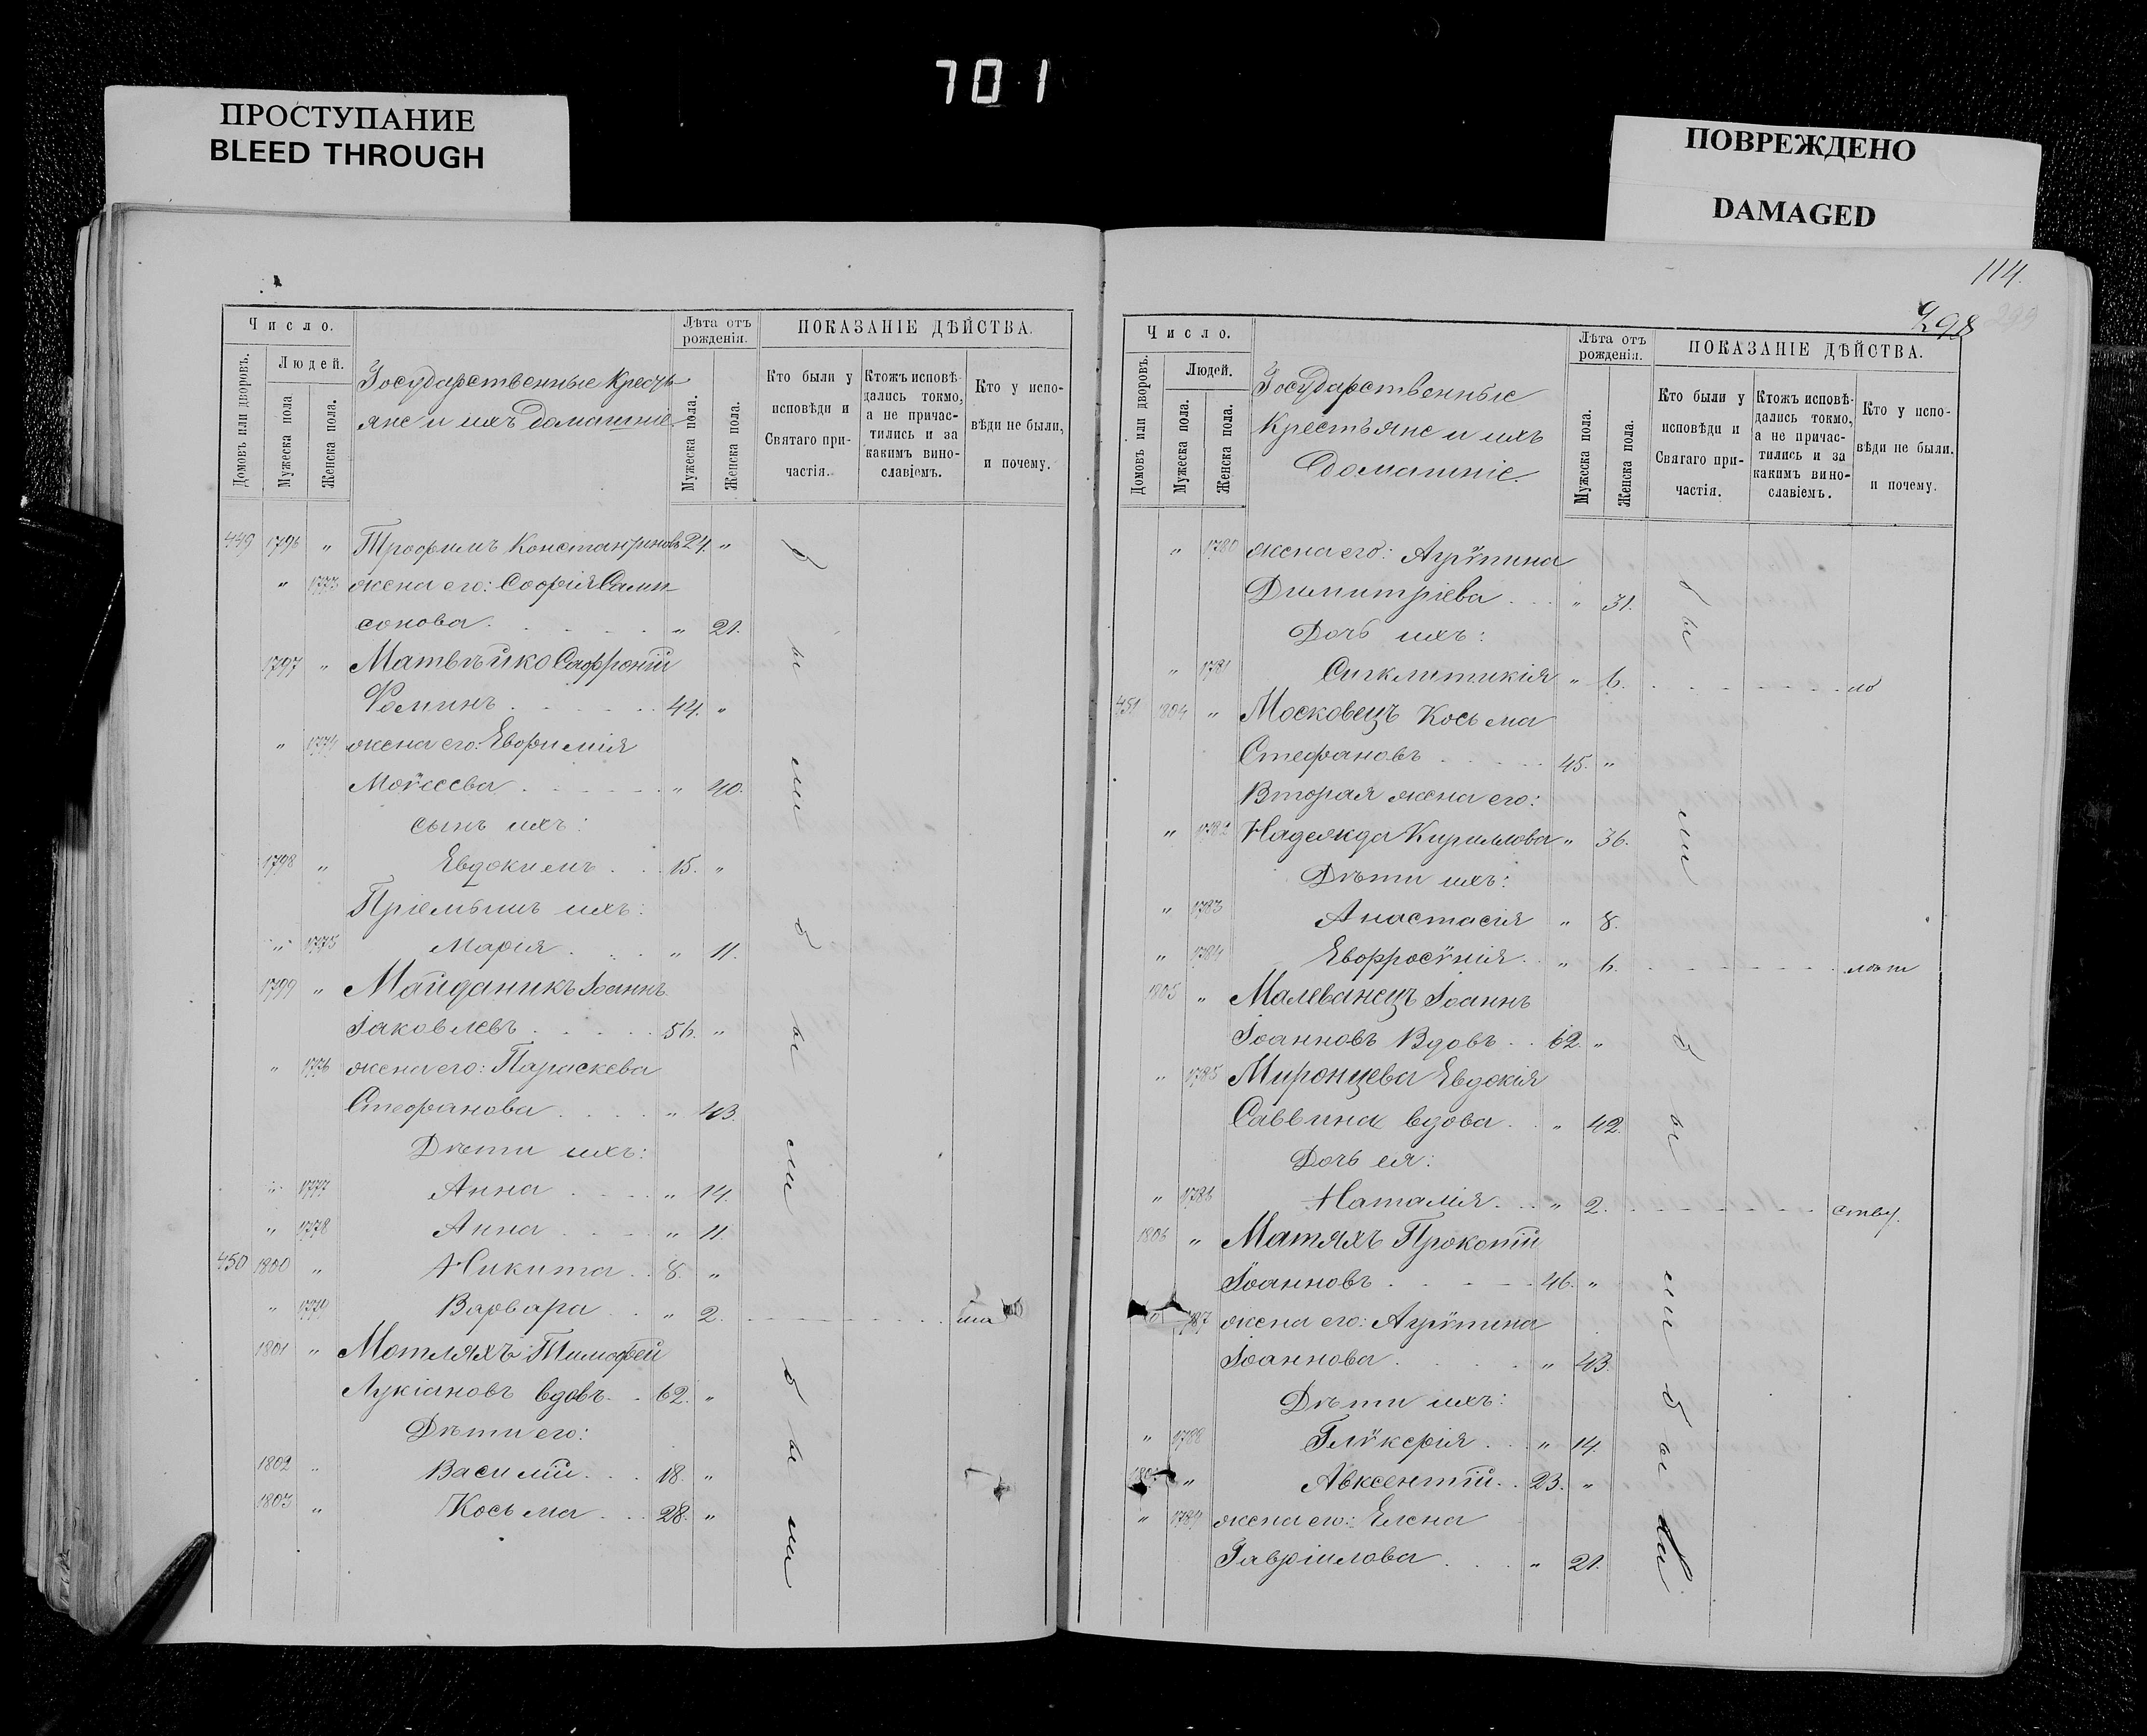 701
ПРОСТУПАНИЕ
BLEED THROUGH
ПОВРЕЖДЕНО
DAMAGED
Число.
Лѣта отъ рожденія.
ПОКАЗАНІЕ ДѢЙСТВА.
Домовъ или дворовъ.
Людей.
Мужеска пола
Женска пола.
Государственные Кресть-
яне и ихъ домашніе
Мужеска пола.
Женска пола.
Кто были у исповѣди и Святаго при-частія.
Ктожъ исповѣ-дались токмо, а не причас-тились и за какимъ вино-славіемъ.
Кто у испо-вѣди не были, и почему.
449 1796 „ Трофимъ Константиновъ 24. „
„ 1773 жена его: Софія Самп-
сонова . . . . . „ 21.
1797 „ Матвѣйко Софроній
Фоминъ . . . . . 44. „
„ 1774 жена его: Евфимія
Моѵсеева . . . . . „ 40.
сынъ ихъ:
1798 „ Евдокимъ . . 15. „
Пріемышъ ихъ:
„ 1775 Марія . . . . „ 11.
1799 „ Майданикъ Іоаннъ
Іаковлевъ . . . . . 56. „
„ 1776 жена его: Параскева
Стефанова . . . . „ 43.
Дѣти ихъ:
„ 1777 Анна . . . . „ 14.
„ 1778 Анна . . . . „ 11.
450 1800 „ Никита . . 8. „
„ 1779 Варвара . . „ 2. . . . . . . . .
1801 „ Мотляхъ Тимофей
Лукіановъ вдовъ . . 62. „
Дѣти его:
1802 „ Василій . . . 18. „
1803 „ Косьма . . . 28. „
были
были
были
114.
298
Число.
Лѣта отъ рожденія.
ПОКАЗАНІЕ ДѢЙСТВА.
Домовъ или дворовъ.
Людей.
Мужеска пола.
Женска пола.
Государственные
Крестьяне и ихъ
домашніе.
Мужеска пола.
Женска пола.
Кто были у исповѣди и Святаго при-частія.
Ктожъ исповѣ-дались токмо, а не причас-тились и за какимъ вино-славіемъ.
Кто у испо-вѣди не были. и почему.
„ 1780 жена его: Агрѵпина
Димитріева . . . „ 31.
Дочь ихъ:
„ 1781 Сигклитикія „ 6. . . . . . . . . ло
451 1804 „ Московецъ Косьма
Стефановъ . . . . . 45. „
Вторая жена его:
„ 1782 Надежда Кириллова „ 36.
Дѣти ихъ:
„ 1783 Анастасія „ 8.
„ 1784 Евфросѵнія . . „ 6. . . . . . . . . лѣт
1805 „ Малеванецъ Іоаннъ
Іоанновъ Вдовъ . . 62. „
„ 1785 Миронцева Евдокія
Саввина вдова . . „ 42.
Дочь ея:
„ 1786 Наталія . . . „ 2. . . . . . . . . ству.
1806 „ Матяхъ Прокопій
Іоанновъ . . . . . 46. „
787 жена его: Агрѵпина
Іоаннова . . . . . „ 43.
Дѣти ихъ:
„ 1788 Глѵкерія . . . „ 14.
„ Авксентій . . 23. „
„ 1789 жена его: Елена
Гавріилова . . . . „ 21.
были
были
были